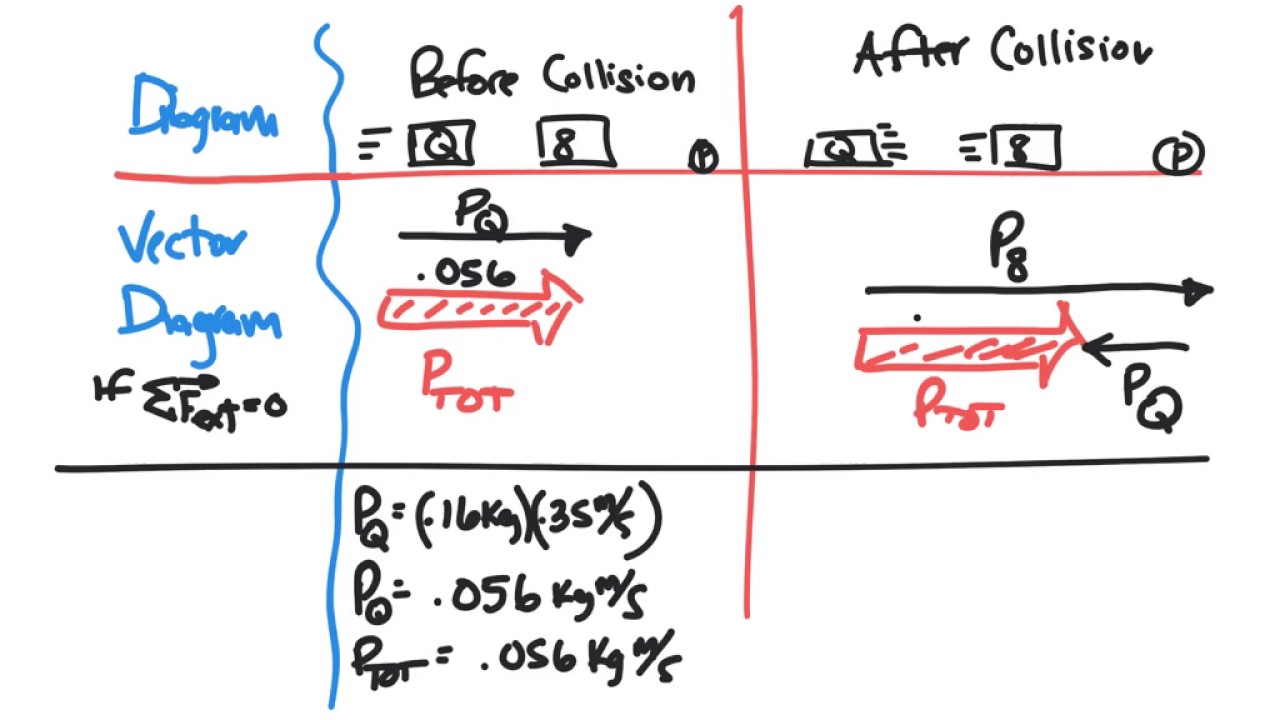 Diagram
Before Collision
After Collision
Q 8 P
Q 8 P
Vector
Diagram
If ΣF⃗ext=0
PQ
.056
PTOT
P8
.
PTOT
PQ
PQ=(.16Kg)(.35m/s)
PQ= .056 Kg m/s
PTOT = .056 Kg m/s